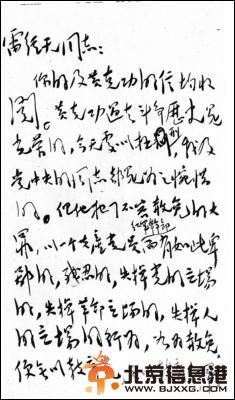 雷经天同志：
你的及黄克功的信均收
阅。黄克功过去斗争历史是
光荣的，今天处以极刑，我及
党中央的同志都是为之惋惜
的。但他犯了不容赦免的大
罪，以一个共产党员红军干部而有如此卑
鄙的，残忍的，失掉党的立场
的，失掉革命立场的，失掉人
的立场的行为，如为赦免，
便无以教育
北京信息港
WWW.BJXXG.COM